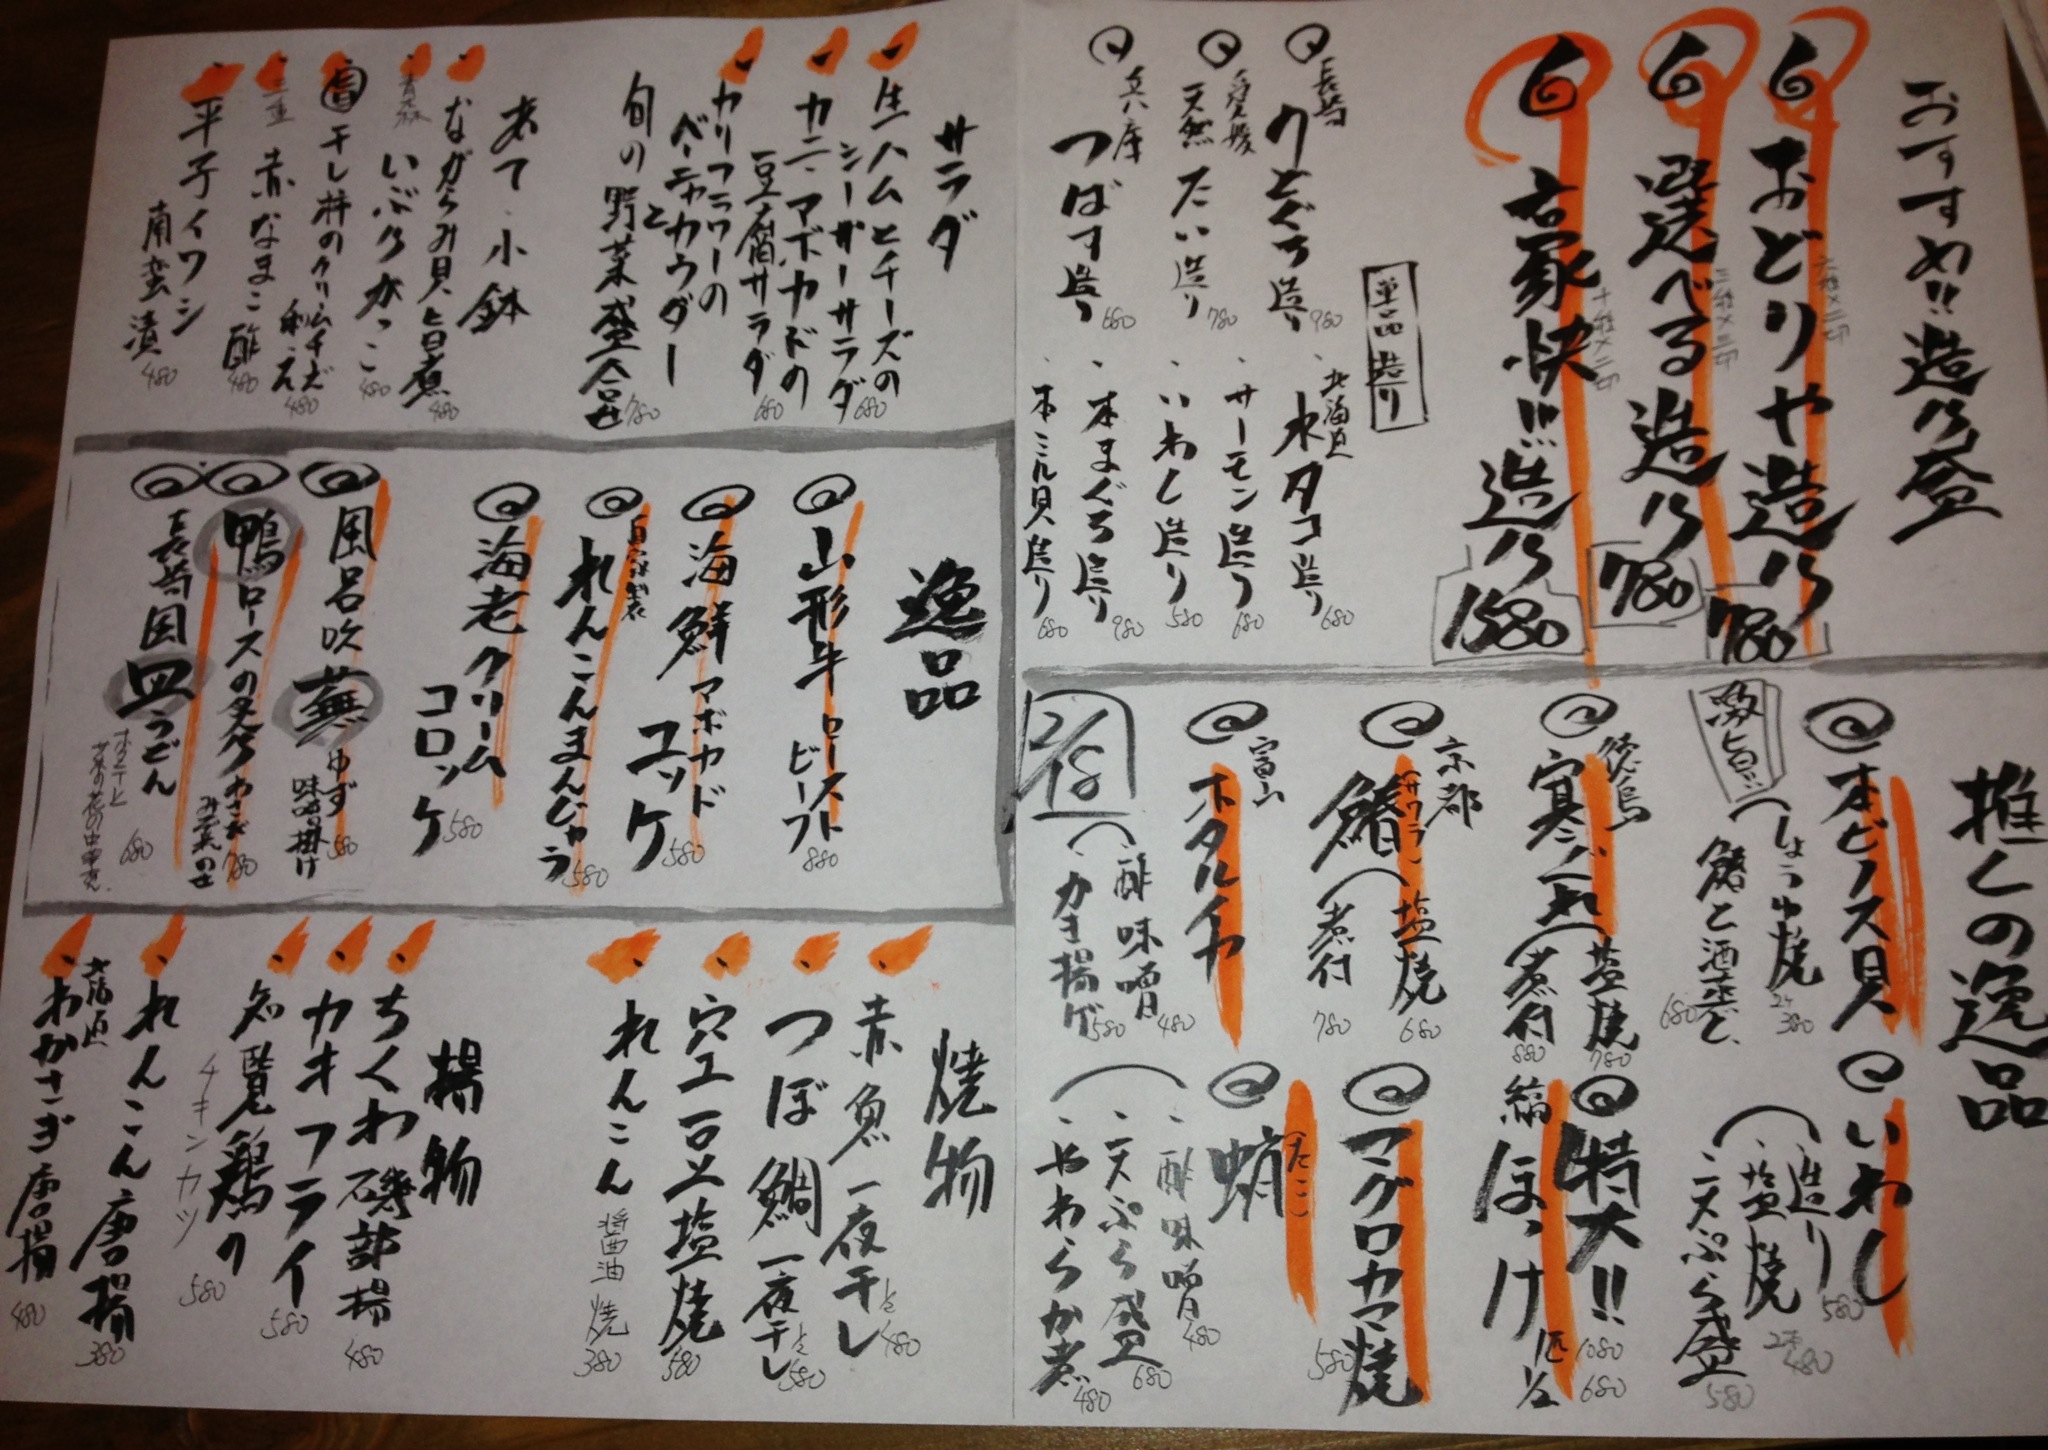 おすすめ!!造り盛
おどりや造り 780
二種×二切
選べる造り 780
三種×三切
右家快!!!造り 1580
十種×二切
単品造り
長崎 のどぐろ造り 980
愛媛 天然 たい造り 780
兵庫 つばす造り 680
北海道 水タコ造り 680
サーモン造り 680
いわし造り 580
本まぐろ造り 980
本ミル貝造り 680
推しの逸品
本ビノス貝
しょうゆ焼 2ケ 380
鰆と酒蒸し 680
徳島 寒ぶれ
塩焼 780
煮付 880
京都 鰆(サワラ)
塩焼 680
煮付 780
富山 ホタルイカ
酢味噌 480
かき揚げ 580
2/18
いわし
造り 580
塩焼 2本 480
天ぷら盛 580
特大!! 1080
縞ほっけ 匹1/2 680
マグロカマ焼 580
蛸(たこ)
酢味噌 480
天ぷら盛 680
やわらか煮 480
サラダ
生ハムとチーズの
シーザーサラダ 680
カニ・アボカドの
豆腐サラダ 680
カリフラワーの
バーニャカウダー
と
旬の野菜盛合せ 780
あて・小鉢
ながらみ貝旨煮 480
青森 いぶりがっこ 480
干し柿のクリームチーズ和え 480
三重 赤なまこ酢 480
平子イワシ
南蛮漬 480
逸品
山形牛ローストビーフ 880
海鮮アボカドユッケ 580
自家製 れんこんまんじゅう 580
海老クリームコロッケ 580
風呂吹蕪 ゆず味噌掛け 580
鴨ロースの炙り わさび 780
長崎風皿うどん 680
焼物
赤魚一夜干し 480
つぼ鯛一夜干し 580
穴子豆塩焼 580
れんこん醤油焼 380
揚物
ちくわ磯部揚 480
カキフライ 580
知覧鶏り
チキンカツ 580
れんこん唐揚 380
北海道 わかさぎ唐揚 480